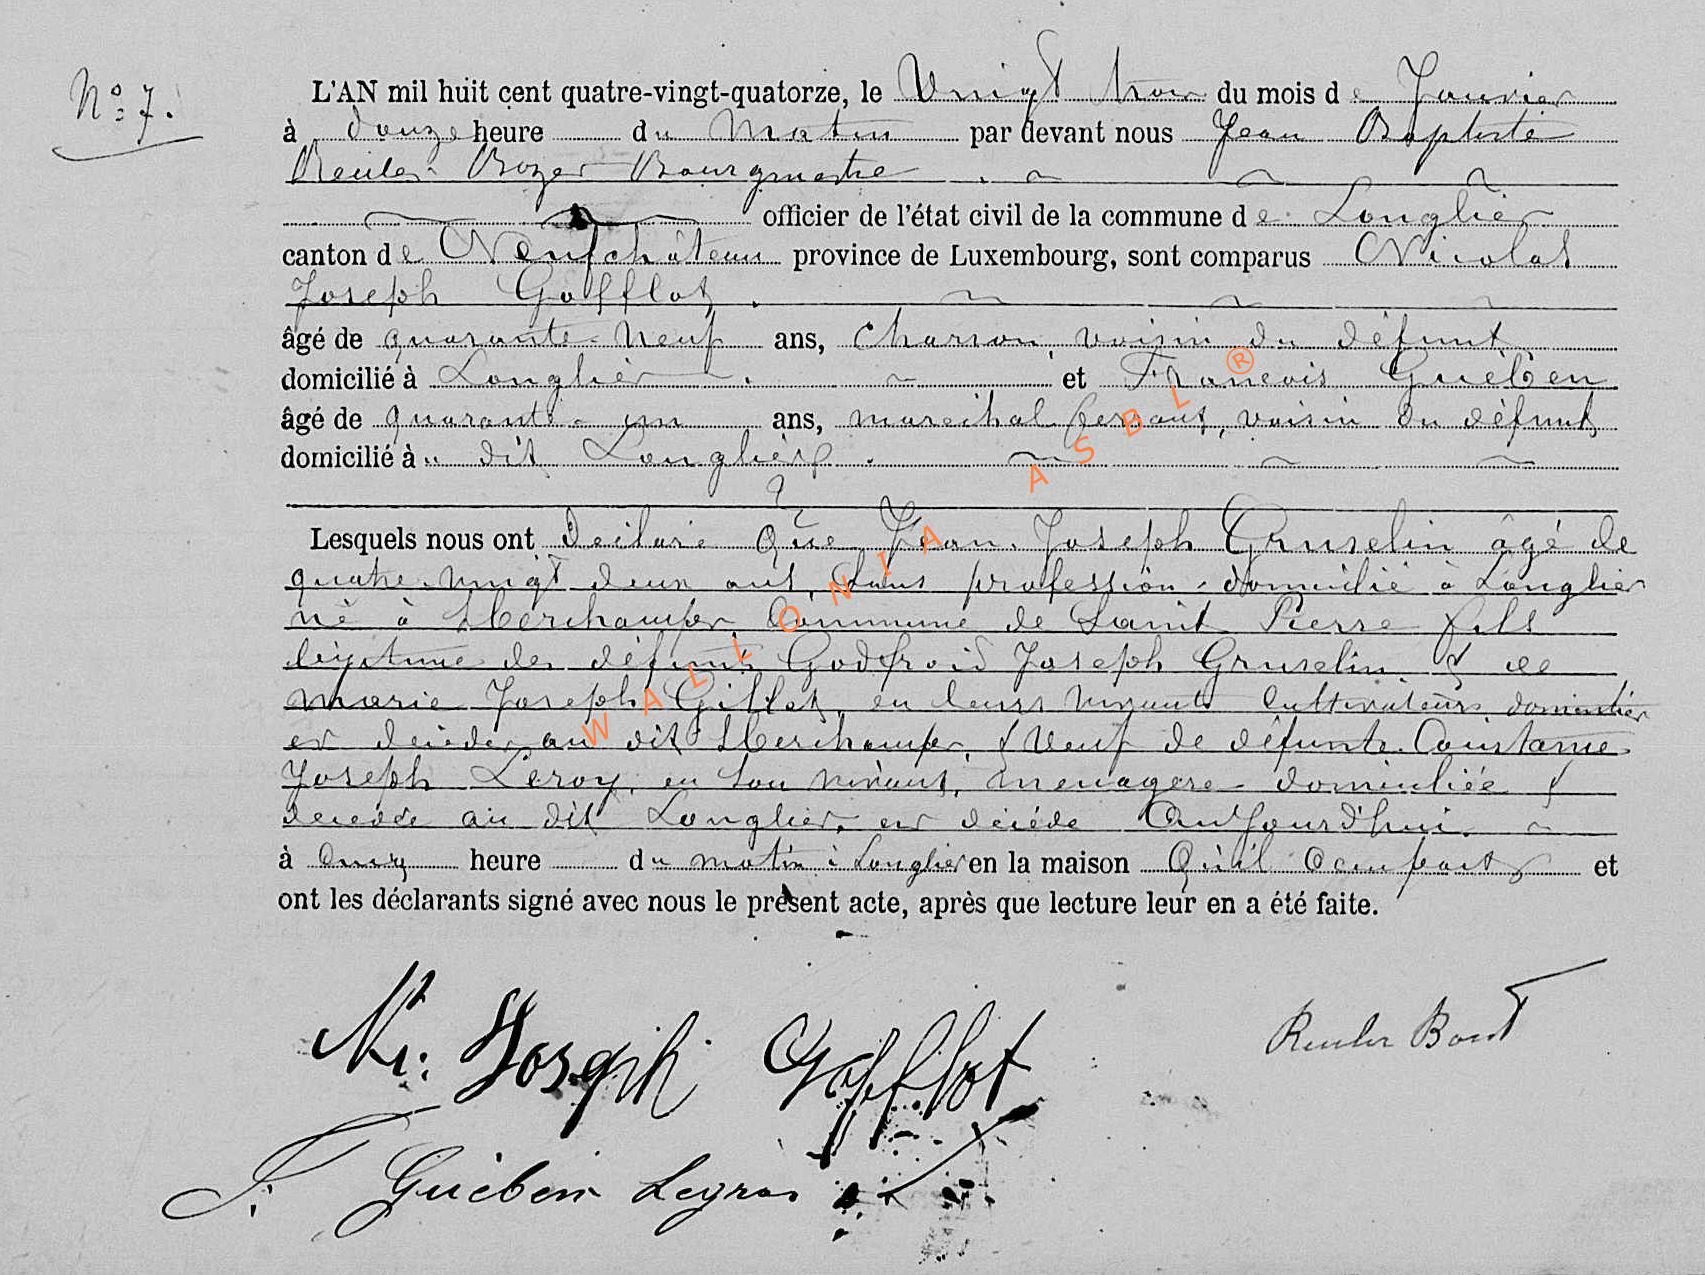 N° 7.
L'AN mil huit cent quatre-vingt-quatorze, le Vingt trois du mois de Janvier
à douze heure du Matin par devant nous Jean Baptiste
Reuler Bozer Bourgmestre
officier de l'état civil de la commune de Longlier
canton de Neufchâteau province de Luxembourg, sont comparus Nicolas
Joseph Gofflot
âgé de quarante-neuf ans, charron, voisin du défunt
domicilié à Longlier et François Guèben
âgé de quarante-un ans, marechal ferrant, voisin du défunt
domicilié à u dit Longlier
Lesquels nous ont declaré Que Jean Joseph Gruselin âgé de
quatre-vingt deux ans, sans profession, domicilié à Longlier
né à Hberchamps Commune de Saint Pierre fils
légitime des défunts Godfroid Joseph Gruselin & de
marie Joseph Gillet, en leurs vivants Cultivateurs, domiciliés
et décédés au dit Hberchamps, & Veuf de défunte Constance
Joseph Leroy, en son vivant, menagère domiciliée &
décédée au dit Longlier, est décédé Aujourd'hui
à onze heure du matin à Longlier en la maison Qu'il occupait et
ont les déclarants signé avec nous le présent acte, après que lecture leur en a été faite.
Ni: Joseph Gofflot
Reuler Bout
F: Guèben Legros
WALLONIA ASBL ®